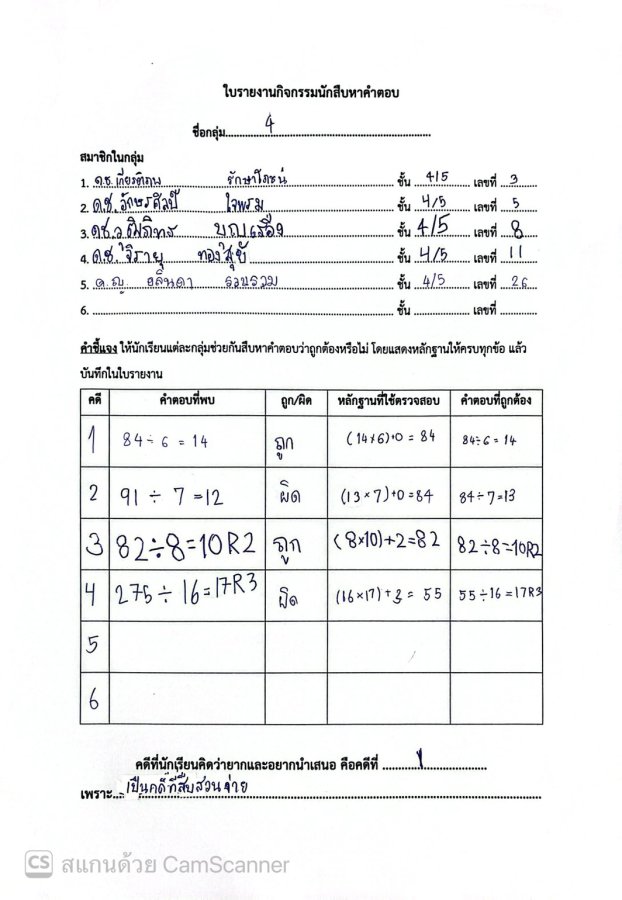 ใบรายงานกิจกรรมนักสืบหาคำตอบ
ชื่อกลุ่ม 4
สมาชิกในกลุ่ม
1. ด.ช. รักษาโภชน์ ชั้น 4/5 เลขที่ 3
2. ด.ช. อักษรศิลป์ ใจพรม ชั้น 4/5 เลขที่ 5
3. ด.ช. บุญเรือง ชั้น 4/5 เลขที่ 8
4. ด.ช. จิรายุ ทองสุขั ชั้น 4/5 เลขที่ 11
5. ด.ญ. อลินดา รวบรวม ชั้น 4/5 เลขที่ 26
6. ชั้น เลขที่
คำชี้แจง ให้นักเรียนแต่ละกลุ่มช่วยกันสืบหาคำตอบว่าถูกต้องหรือไม่ โดยแสดงหลักฐานให้ครบทุกข้อ แล้ว
บันทึกในใบรายงาน
คดี คำตอบที่พบ ถูก/ผิด หลักฐานที่ใช้ตรวจสอบ คำตอบที่ถูกต้อง
1 84 ÷ 6 = 14 ถูก (14×6)+0 = 84 84÷6 = 14
2 91 ÷ 7 = 12 ผิด (13×7)+0=84 84÷7=13
3 82÷8=10R2 ถูก (8×10)+2=82 82÷8=10R2
4 275÷16=17R3 ผิด (16×17)+3 = 55 55÷16=17R3
5
6
คดีที่นักเรียนคิดว่ายากและอยากนำเสนอ คือคดีที่ 1
เพราะ เป็นคดีที่สืบสวนง่าย
CS สแกนด้วย CamScanner